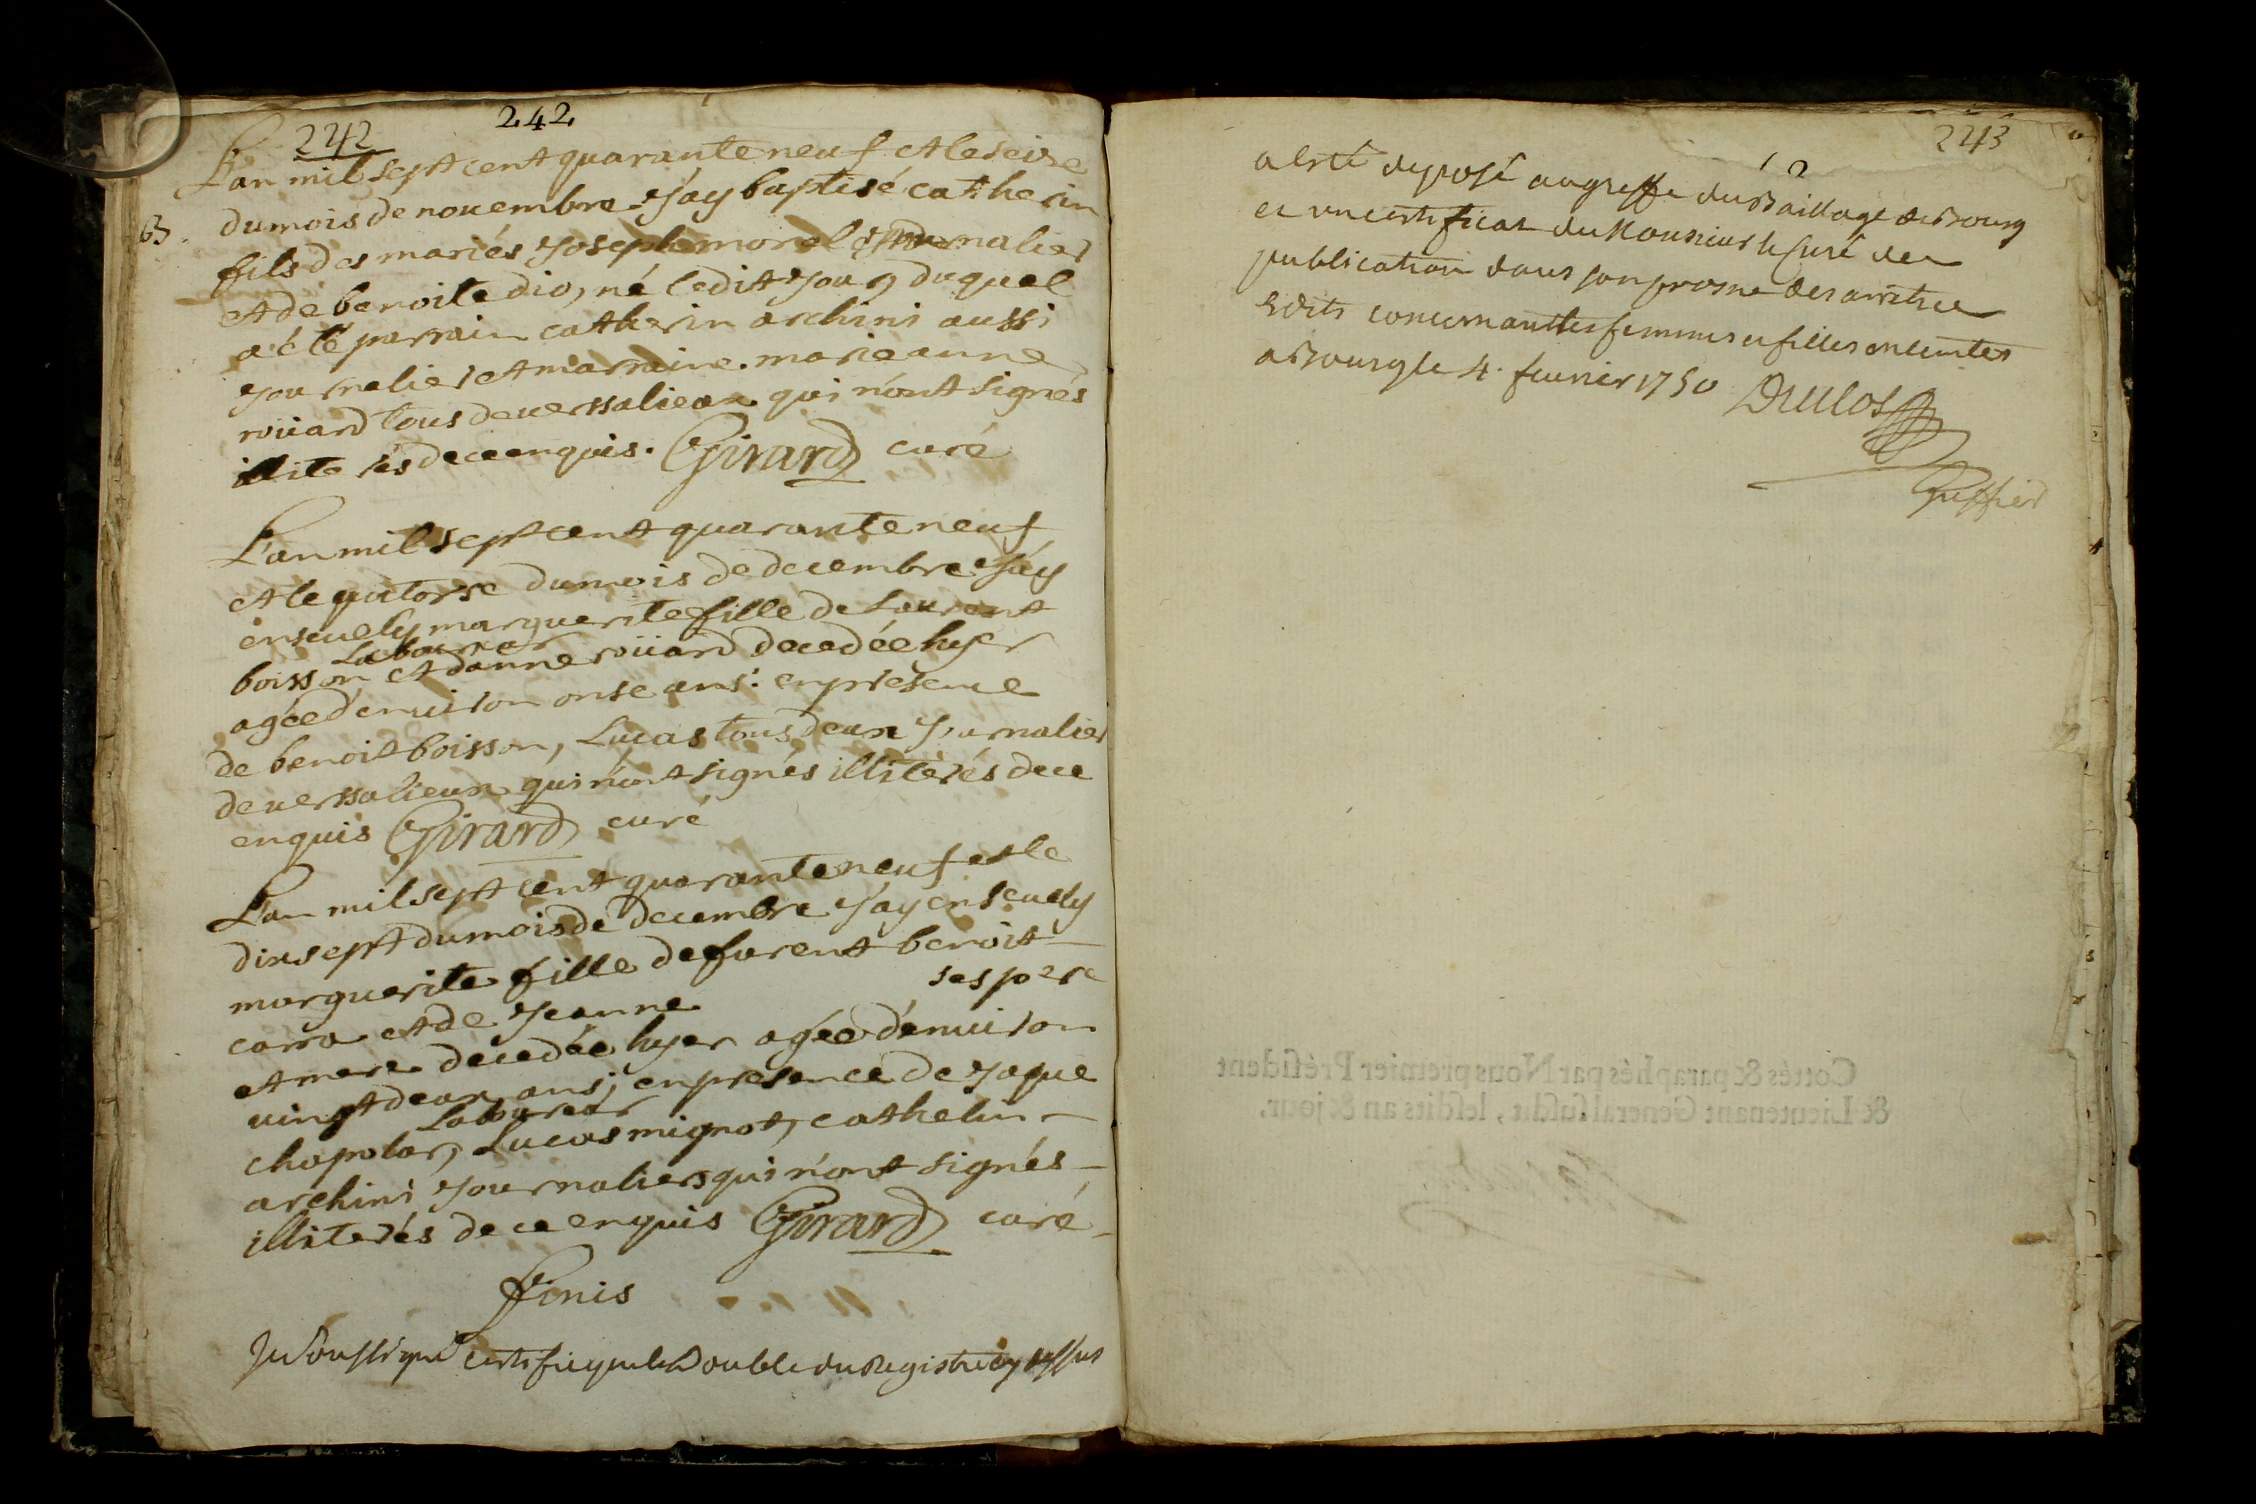 242
242
L'an mil sept cent quarante neuf et le seize
B. du mois de novembre j'ay baptisé catherin
fils des mariés joseph morel journalier
et de benoite dio, né ledit jour, duquel
a été parrain catherin archini aussi
journalier et marraine marie anne
roüard tous de versalieux qui n'ont signés
illiterés de ce enquis. Girard curé
L'an mil sept cent quarante neuf
et le quatorse du mois de decembre j'ay
ensevely marguerite fille de Laurent
Laboureur
boisson et d'anne roüard decedée hyer
agée d'environ onse ans: en presence
de benoit boisson, Lucas tous deux journalier
de versalieux qui n'ont signés illiterés de ce
enquis Girard curé
L'an mil sept cent quarante neuf et le
dix sept du mois de decembre j'ay ensevely
marguerite fille de furent benoit
carra et de jeanne ses pere
et mere decedée hyer agée d'environ
vingt deux ans; en presence de jaque
Laboureur
chapolar, Lucas mignot, cathelin
archini journaliers qui n'ont signés
illiterés de ce enquis Girard curé
finis
Je soussigné certifie que le Double du Registre cy dessus
243
a esté deposé au greffe du Baillage de Bourg
et un certificat du Monsieur le Curé de
publication dans son prosne des
Edits concernant les femmes et filles enceintes
a Bourg le 4. fevrier 1750 Duclos
Greffier
Cottés & paraphés par Nous premier Préſident
& Lieutenant General ſuſdit, leſdits an & jour.